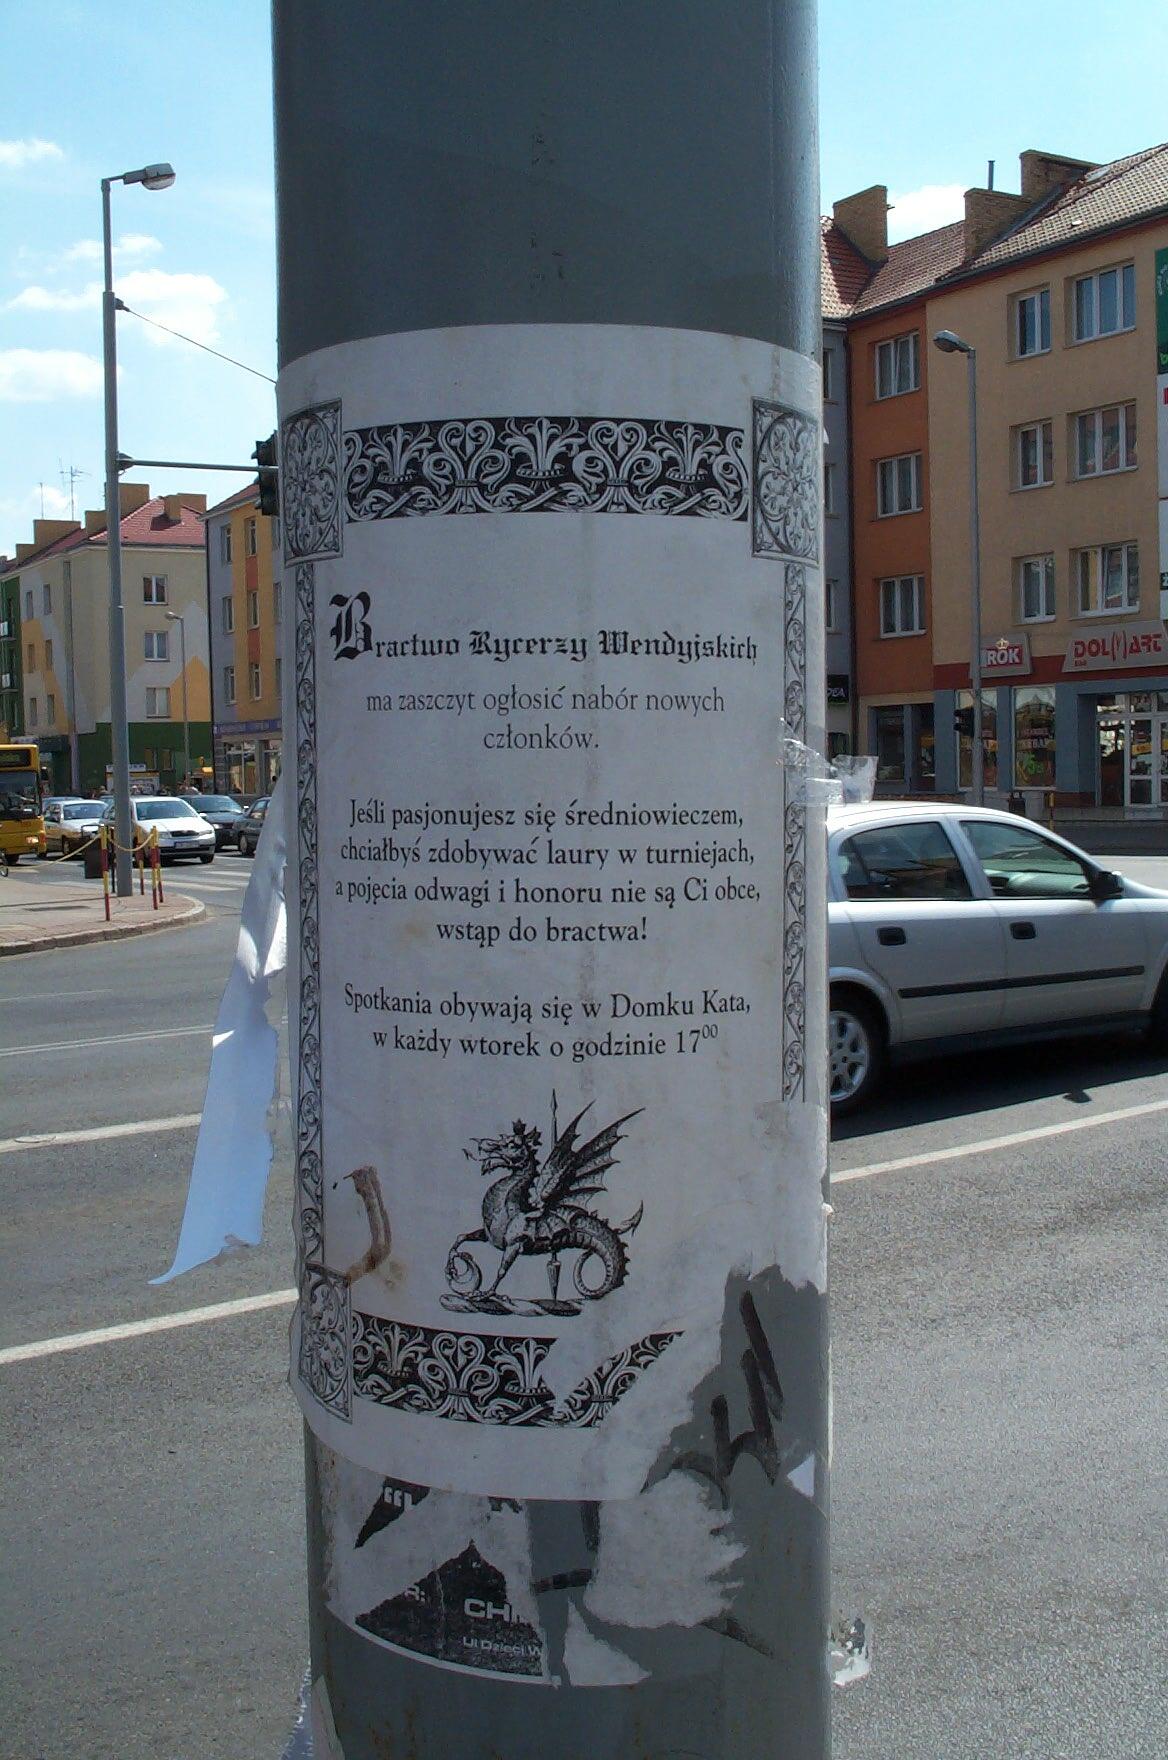 Bractwo Rycerzy Wendyjskich
ma zaszczyt ogłosić nabór nowych
członków.
Jeśli pasjonujesz się średniowieczem,
chciałbyś zdobywać laury w turniejach,
a pojęcia odwagi i honoru nie są Ci obce,
wstąp do bractwa!
Spotkania obywają się w Domku Kata,
w każdy wtorek o godzinie 17⁰⁰
ROK
DOLMART
KEBAP
R:
CH
Ul Dzieci W